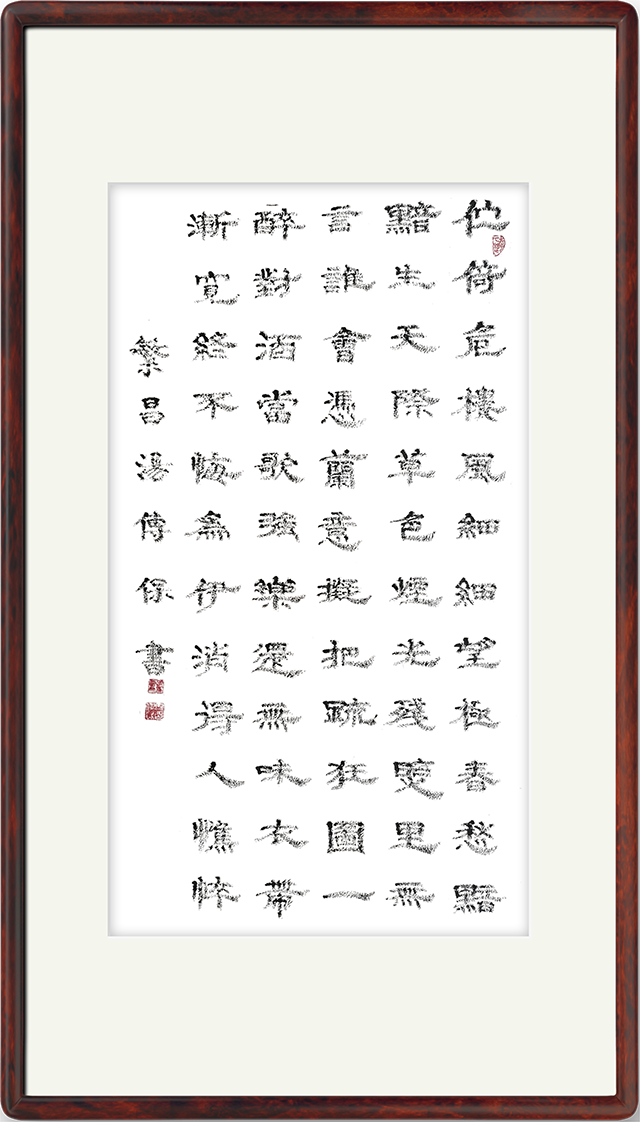 伫倚危樓風細細望極春愁黯
黯生天際草色煙光殘照里無
言誰會憑蘭意擬把疏狂圖一
醉對酒當歌強樂還無味衣帶
漸寬終不悔為伊消得人憔悴
繁昌湯傳保書